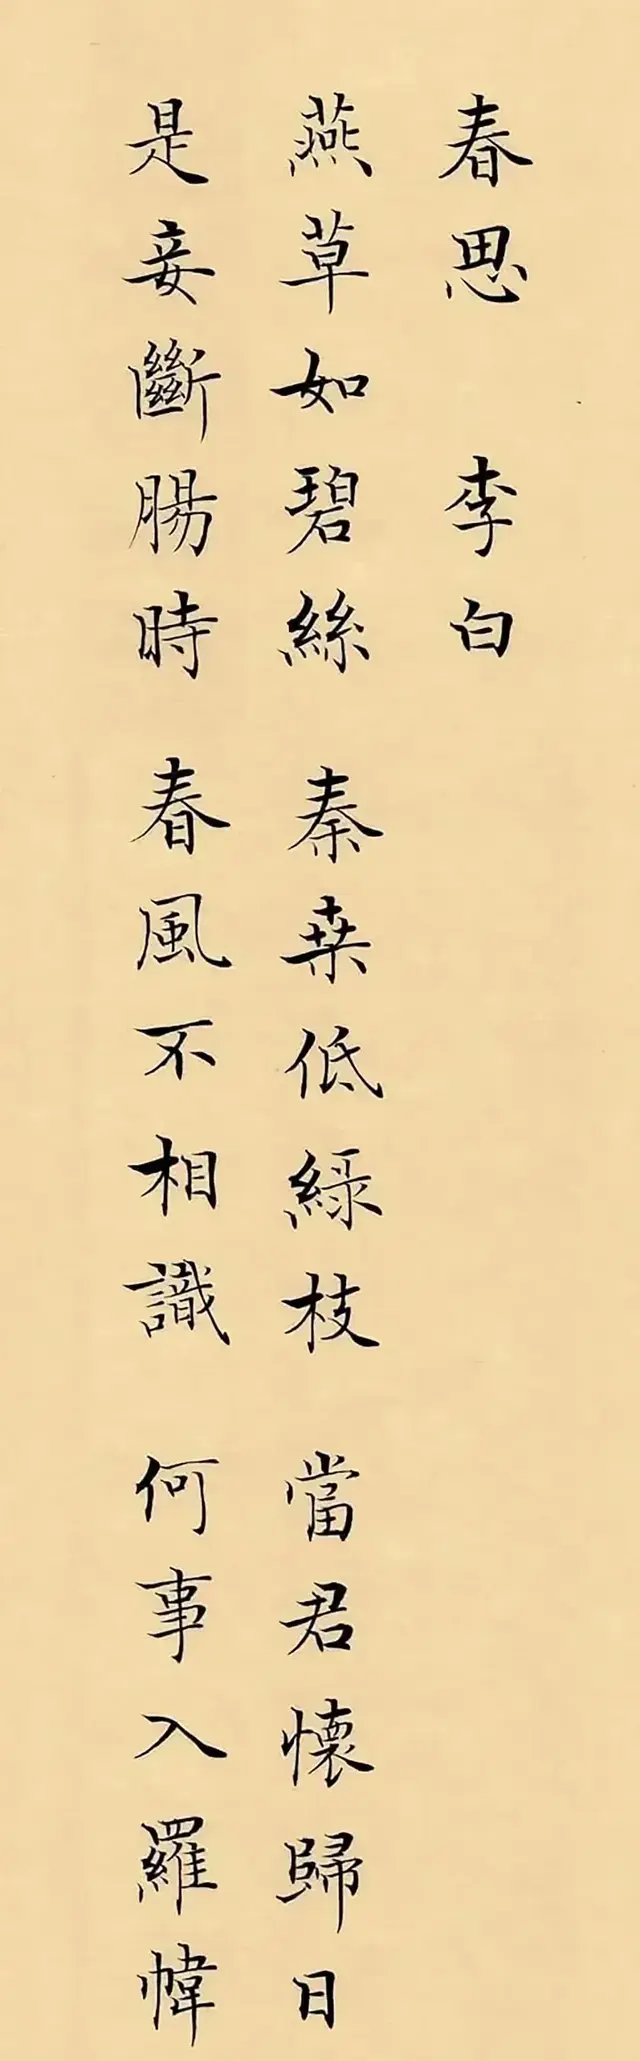 春思 李白
燕草如碧絲 秦桒低綠枝 當君懷歸日
是妾斷腸時 春風不相識 何事入羅幃